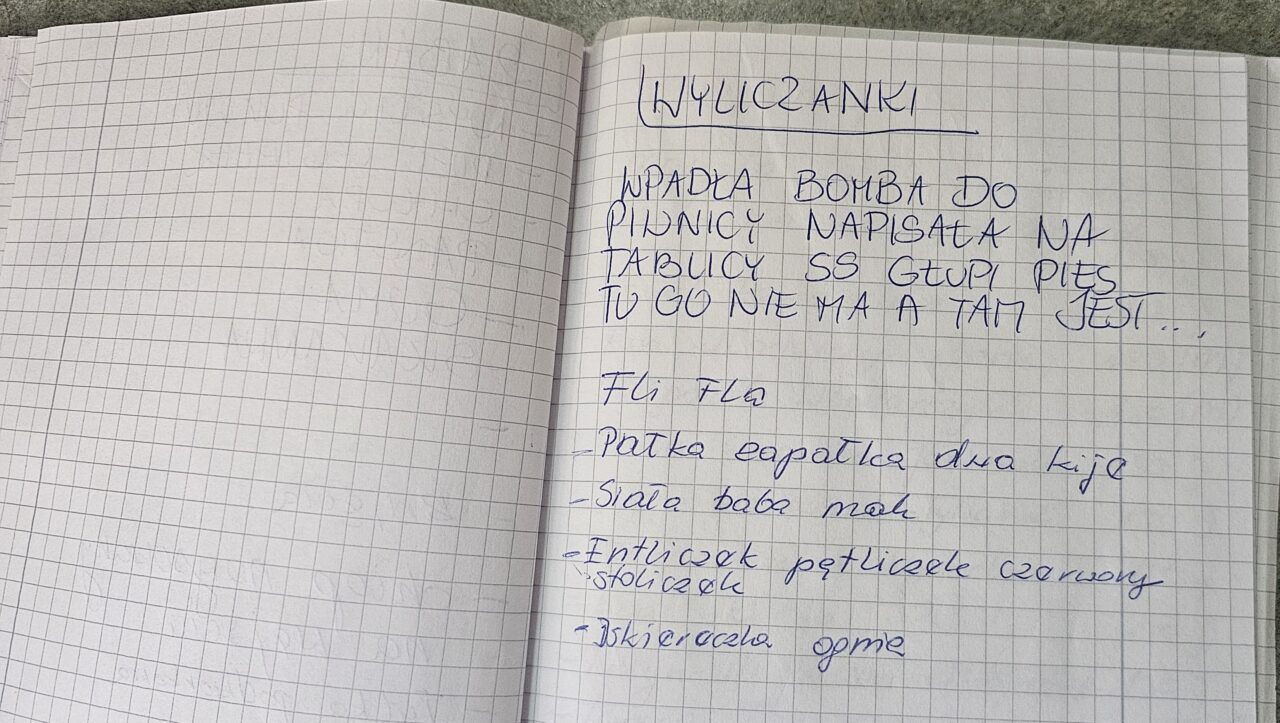 WYLICZANKI
WPADŁA BOMBA DO
PIWNICY NAPISAŁA NA
TABLICY SS GŁUPI PIES
TU GO NIE MA A TAM JEST...,
Fli Fla
- Pałka zapałka dwa kije
- Siała baba mak
- Entliczek pętliczek czerwony
stoliczek
- Iskiereczka ognie